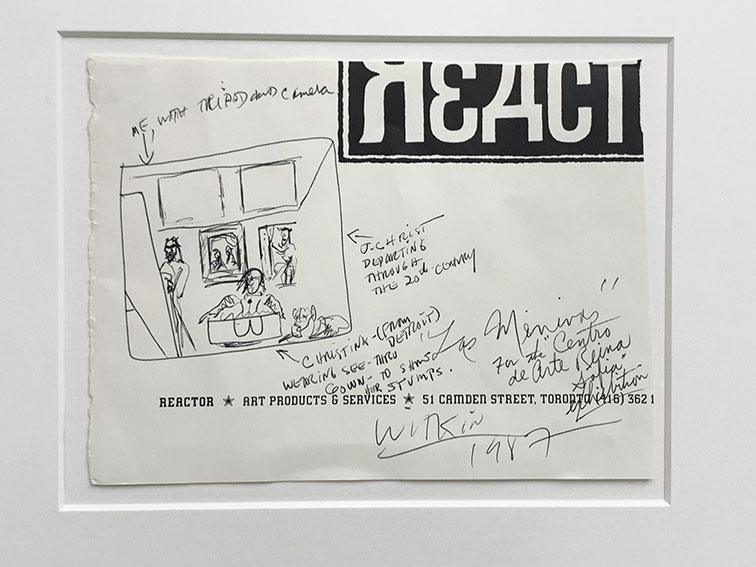 ЯEACT
ME, WITH TRIPOD AND CAMERA
J-CHRIST
DEPARTING
THROUGH
THE 20th-CENTURY
CHRISTINA-(FROM
DETROIT)
WEARING SEE-THRU
GOWN-TO SHOW
HER STUMPS.
"Las Meninas"
For the "Centro
de Arte Reina
Sofia"
exhibition
REACTOR ★ ART PRODUCTS & SERVICES ★ 51 CAMDEN STREET, TORONTO (416) 362 1
Witkin
1987